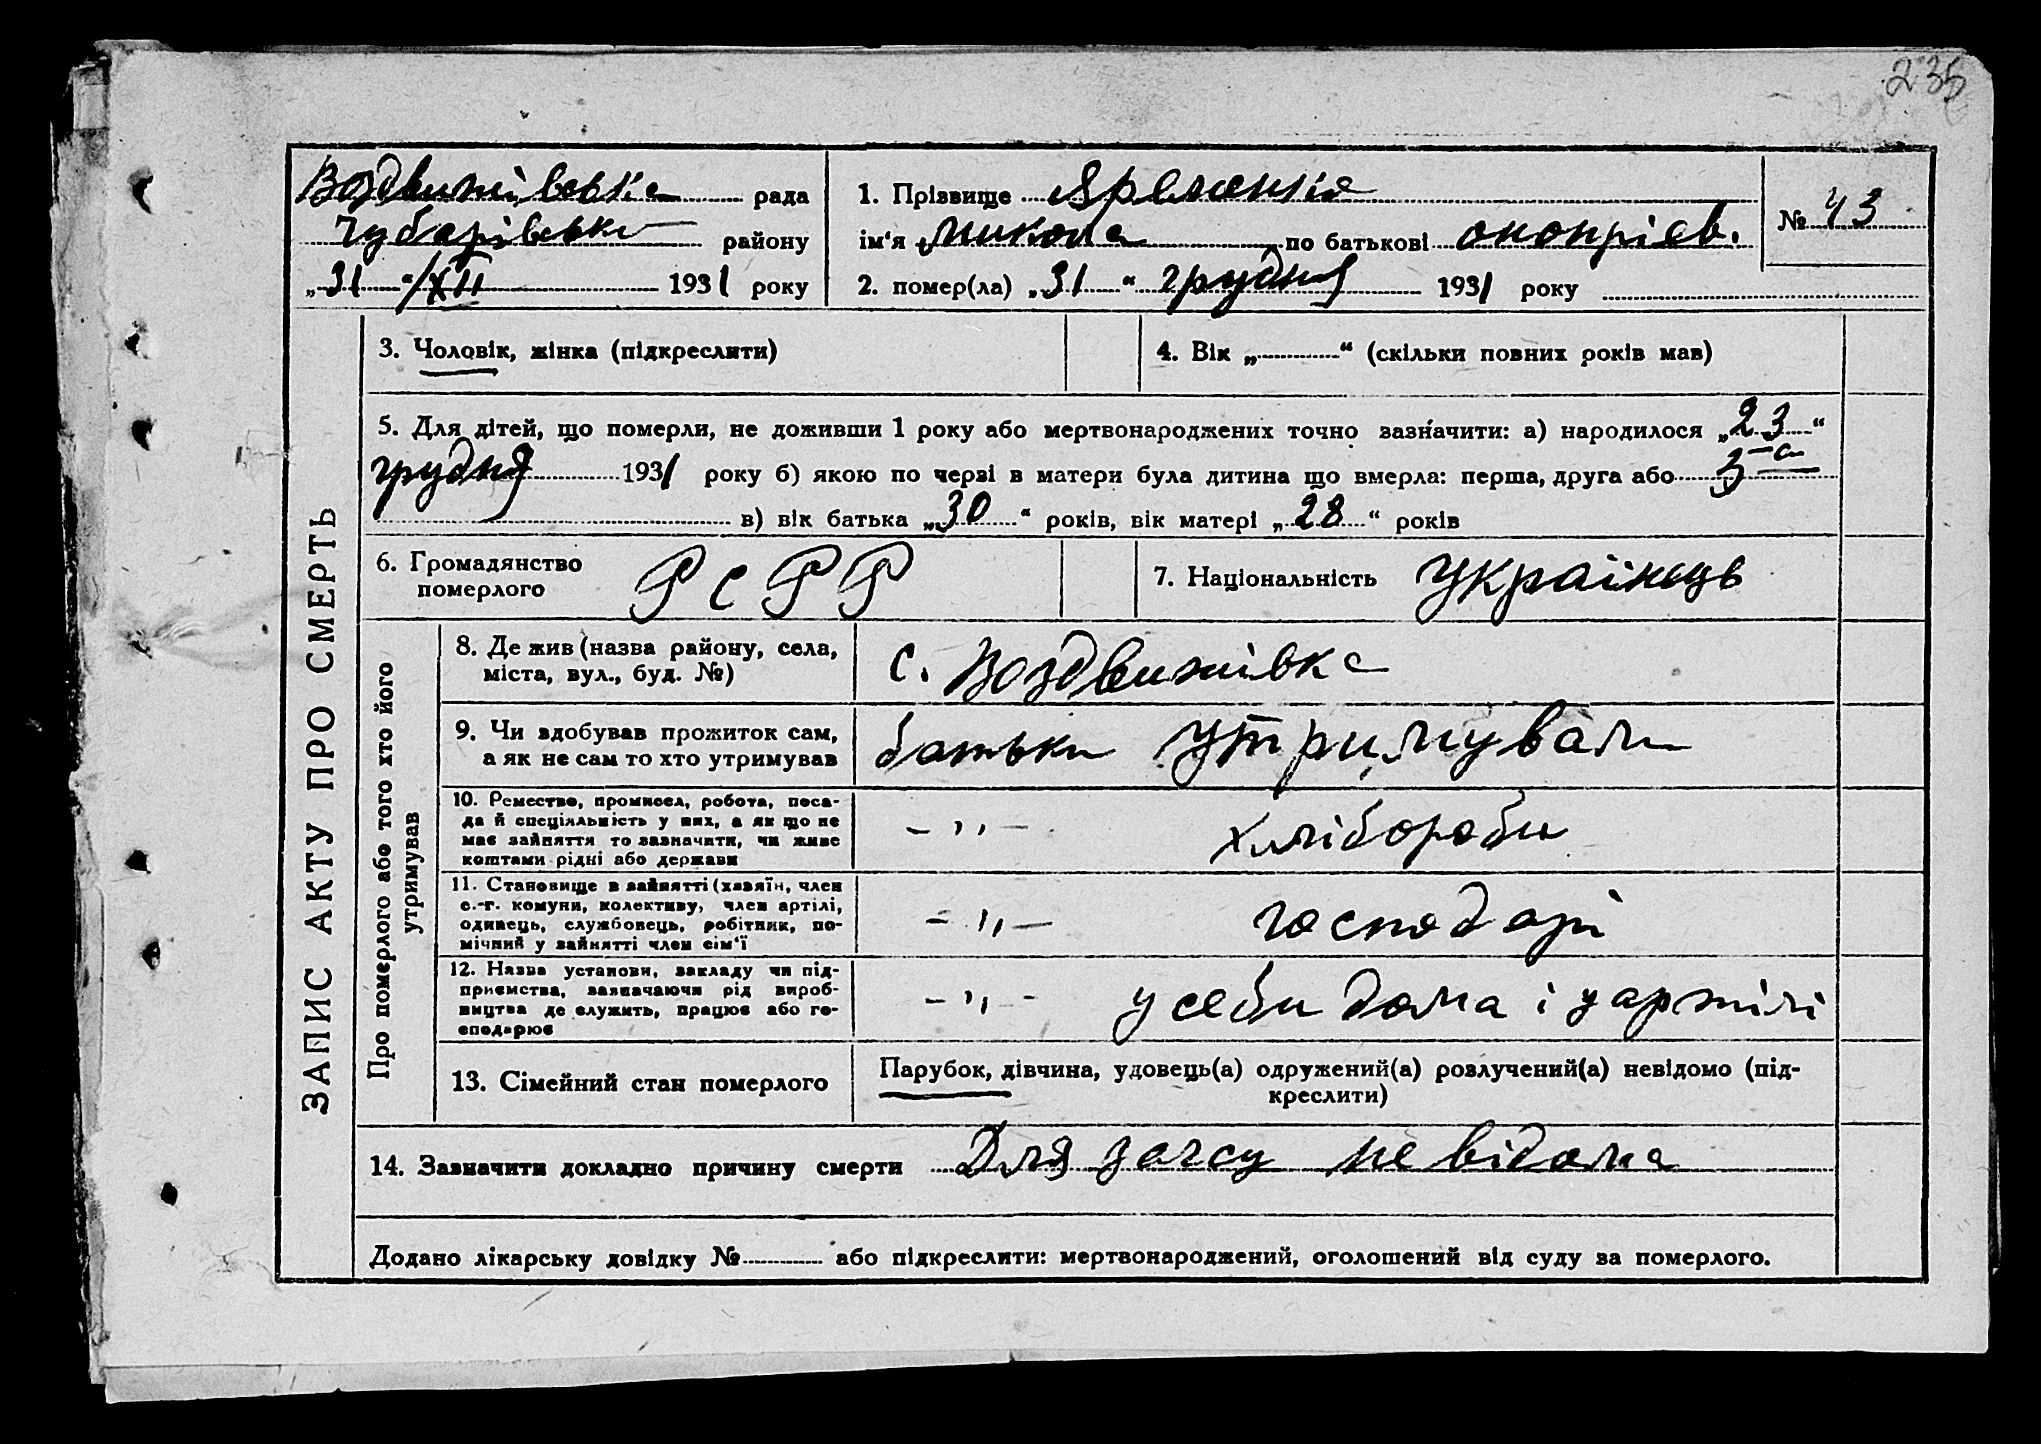 235
Воздвижівська рада
Чубарівськи району
„31“/XII 1931 року
1. Прізвище Яременко
ім'я Микола по батькові Онопрієв.
2. помер(ла) „31“ грудня 1931 року
№ 43
ЗАПИС АКТУ ПРО СМЕРТЬ
3. Чоловік, жінка (підкреслити)
4. Вік „ “ (скільки повних років мав)
5. Для дітей, що померли, не доживши 1 року або мертвонароджених точно зазначити: а) народилося „23“
грудня 1931 року б) якою по черзі в матери була дитина що вмерла: перша, друга або 3-а
в) вік батька „30“ років, вік матері „28“ років
6. Громадянство
померлого
РСРР
7. Національність Українець
Про померлого або того хто його
утримував
8. Де жив (назва району, села,
міста, вул., буд. №)
с. Воздвижівка
9. Чи здобував прожиток сам,
а як не сам то хто утримував
батьки утримували
10. Ремество, промисел, робота, поса-
да й спеціяльність у них, а як що не
має зайняття то зазначити, чи живе
коштами рідні або держави
– „ – хлібороби
11. Становище в зайнятті (хазяїн, член
с.-г. комуни, колективу, член артілі,
одинець, службовець, робітник, по-
мічний у зайнятті член сім'ї
– „ – господарі
12. Назва установи, закладу чи під-
приємства, зазначаючи рід вироб-
ництва де служить, працює або го-
сподарює
– „ – у себи дома і у артілі
13. Сімейний стан померлого
Парубок, дівчина, удовець(а) одружений(а) розлучений(а) невідомо (під-
креслити)
14. Зазначити докладно причину смерти Для загсу не відома
Додано лікарську довідку № або підкреслити: мертвонароджений, оголошений від суду за померлого.